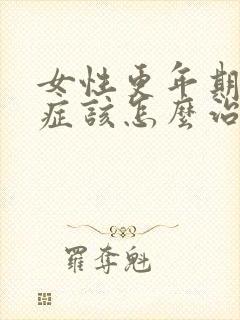 女性更年期
症該怎麼治
羅奪魁